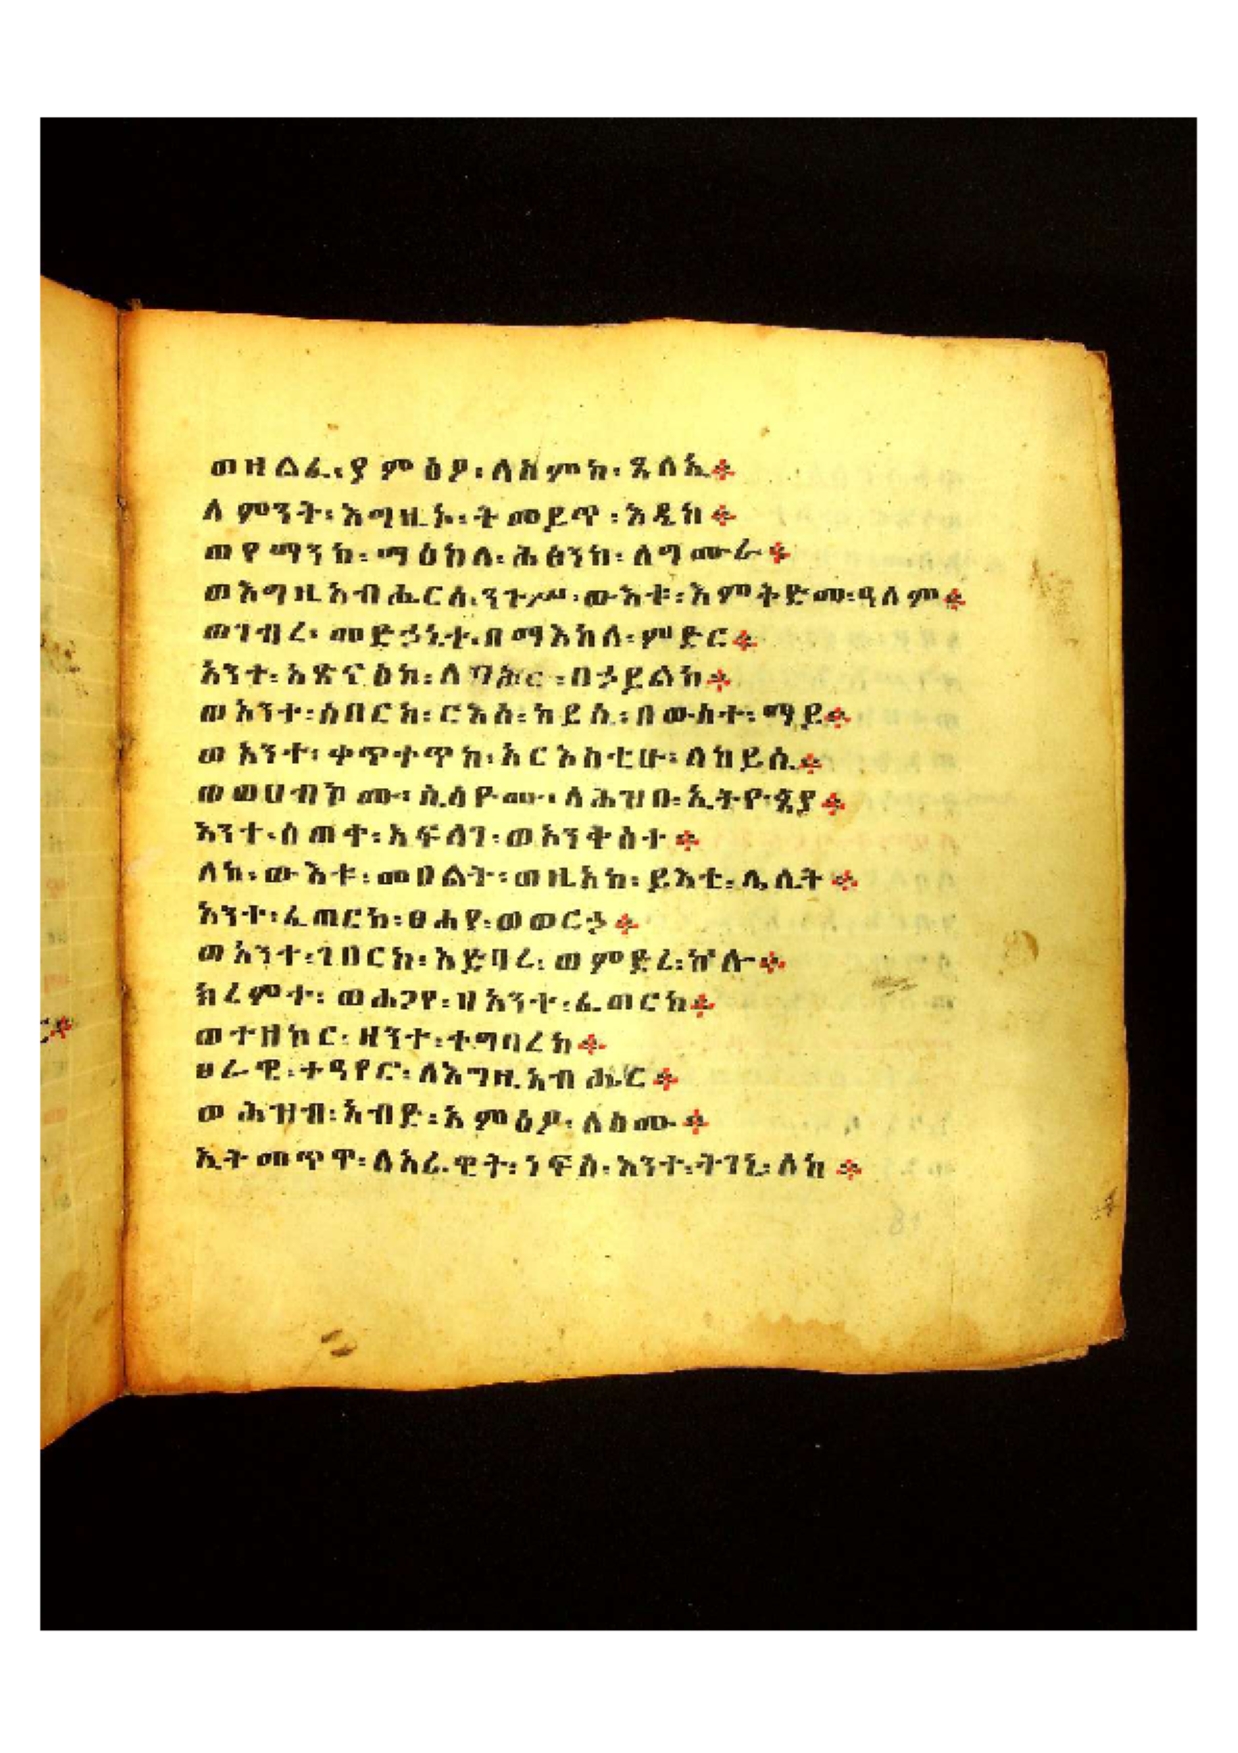 ወዘልፈ፡ ያምዕዖ፡ ለስምከ፡ ጸላኢ፨
ለምንት፡ እግዚኦ፡ ትመይጥ፡ እዴከ፨
ወየማንከ፡ ማዕከለ፡ ሕፅንከ፡ ለግሙራ፨
ወእግዚአብሔርሰ፡ ንጉሥ፡ ውእቱ፡ እምቅድመ፡ ዓለም፨
ወገብረ፡ መድኃኒተ፡ በማእከለ፡ ምድር፨
አንተ፡ አጽናዕካ፡ ለባሕር፡ በኃይልከ፨
ወአንተ፡ ሰበርከ፡ ርእሰ፡ ከይሲ፡ በውስተ፡ ማይ፨
ወአንተ፡ ቀጥቀጥከ፡ አርእስቲሁ፡ ለከይሲ፨
ወወሀብኮሙ፡ ሲሳዮሙ፡ ለሕዝበ፡ ኢትዮጵያ፨
አንተ፡ ሰጠቀ፡ አፍላገ፡ ወአንቅዕተ፨
ለከ፡ ውእቱ፡ መዐልት፡ ወዚአከ፡ ይእቲ፡ ሌሊት፨
አንተ፡ ፈጠርከ፡ ፀሐየ፡ ወወርኃ፨
ወአንተ፡ ገበርከ፡ አድባረ፡ ወምድረ፡ ኵሎ፨
ክረምተ፡ ወሐጋየ፡ ዘአንተ፡ ፈጠርከ፨
ወተዘከር፡ ዘንተ፡ ተግባረከ፨
ፀራዊ፡ ተዓየሮ፡ ለእግዚአብሔር፨
ወሕዝብ፡ አብድ፡ አምዕዖ፡ ለስሙ፨
ኢትመጥዋ፡ ለአራዊት፡ ነፍሰ፡ እንተ፡ ትገኒ፡ ለከ፨